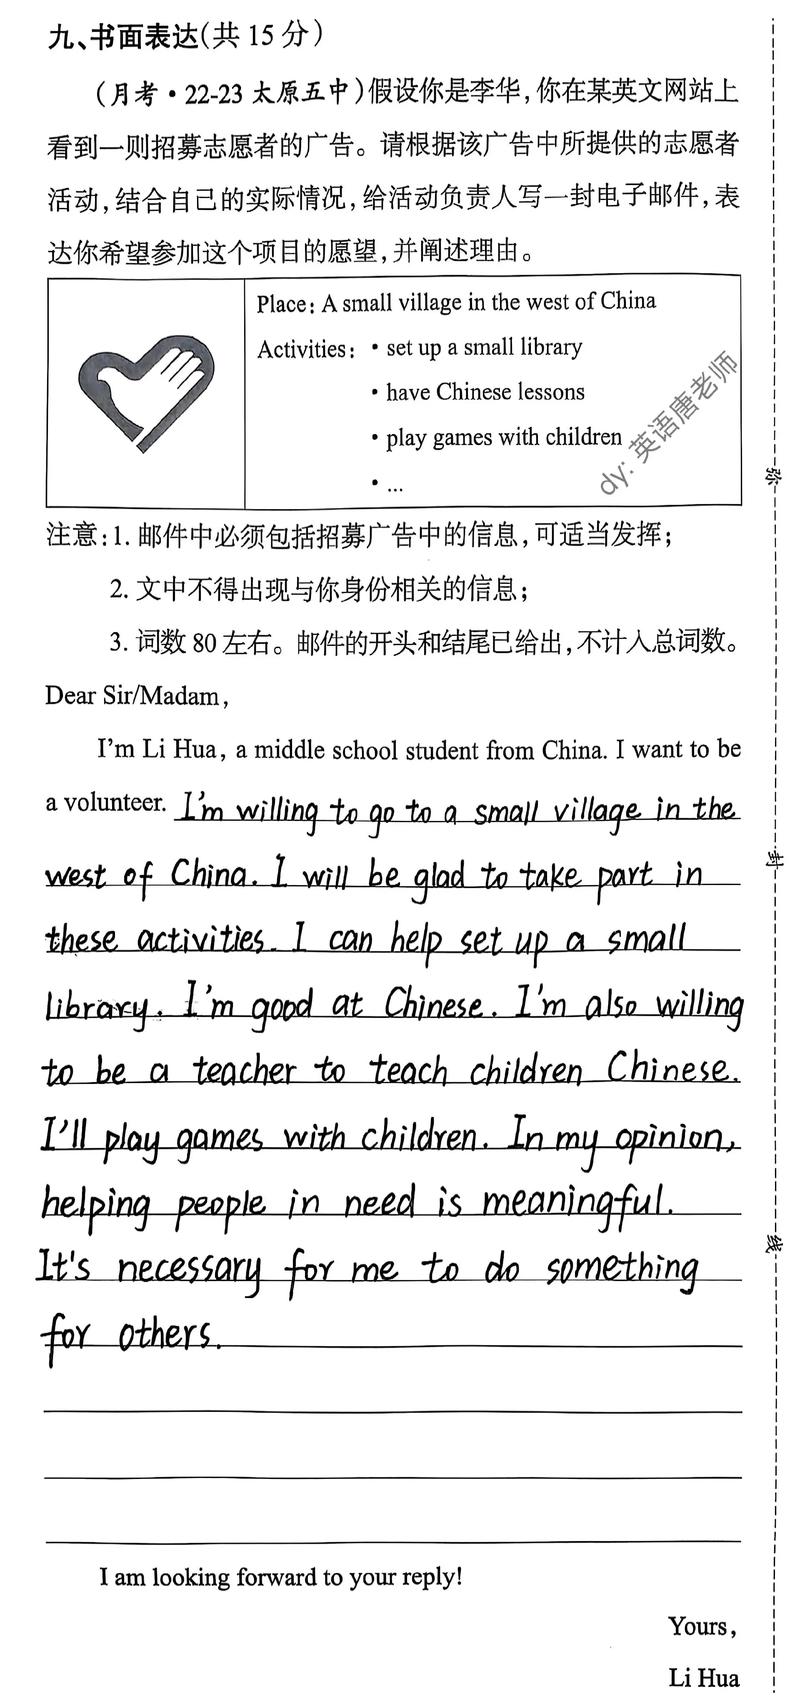 九、书面表达(共15分)
(月考·22-23太原五中)假设你是李华,你在某英文网站上
看到一则招募志愿者的广告。请根据该广告中所提供的志愿者
活动,结合自己的实际情况,给活动负责人写一封电子邮件,表
达你希望参加这个项目的愿望,并阐述理由。
Place: A small village in the west of China
Activities: • set up a small library
• have Chinese lessons
• play games with children
• ...
dy: 英语唐老师
注意:1. 邮件中必须包括招募广告中的信息,可适当发挥;
2. 文中不得出现与你身份相关的信息;
3. 词数80左右。邮件的开头和结尾已给出,不计入总词数。
Dear Sir/Madam,
I'm Li Hua, a middle school student from China. I want to be
a volunteer. I'm willing to go to a small village in the
west of China. I will be glad to take part in
these activities. I can help set up a small
library. I'm good at Chinese. I'm also willing
to be a teacher to teach children Chinese.
I'll play games with children. In my opinion,
helping people in need is meaningful.
It's necessary for me to do something
for others.
I am looking forward to your reply!
Yours,
Li Hua
弥
封
线